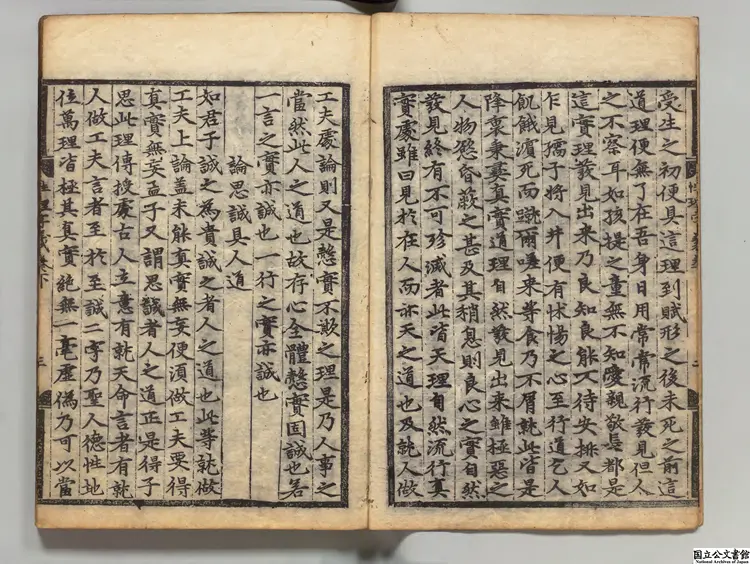 受生之初便具這理到賦形之後未死之前這
道理便無了在吾身日用常常流行發見但人
之不察耳如孩提之童無不知愛親敬兄都是
這實理發見出來乃良知良能不待安排又如
乍見孺子將入井便有怵惕之心至行道乞人
飢餓濵死而蹴爾嗟來等食乃不屑就此皆是
降衷秉彝真實道理自然發見出來雖極惡之
人物慾昏蔽之甚及其稍息則良心之實自然
發見終有不可殄滅者此皆天理自然流行真
實處雖曰見於在人而亦天之道也及就人做
工夫處論則又是慤實不欺之理是乃人事之
當然此人之道也故存心全體慤實固誠也若
一言之實亦誠也一行之實亦誠也
論思誠具人道
如君子誠之為貴誠之者人之道也此等就做
工夫上論蓋未能真實無妄便湏做工夫要得
真實無妄孟子又謂思誠者人之道正是得子
思此理傳授處古人立意有就天命言者有就
人做工夫言者至於至誠二字乃聖人德性地
位萬理皆極其真實絶無一毫虚偽乃可以當
性理字義卷下 三
国立公文書館
National Archives of Japan